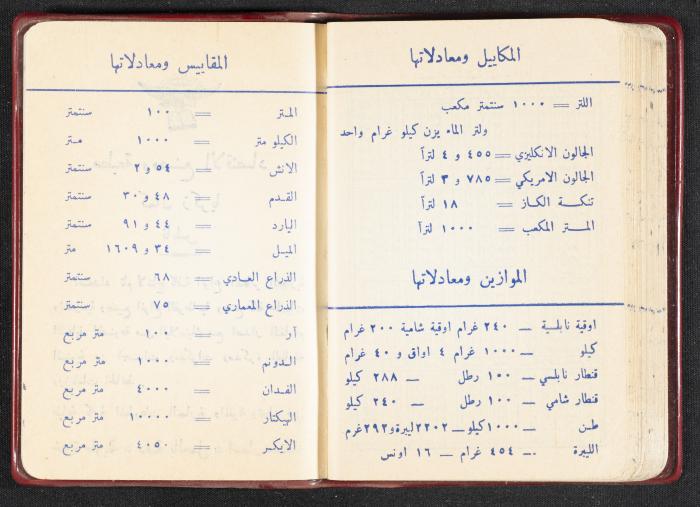 المكاييل ومعادلاتها
اللتر = ١٠٠٠ سنتمتر مكعب
ولتر الماء يزن كيلو غرام واحد
الجالون الانكليزي = ٤٥٥ و ٤ لتراً
الجالون الامريكي = ٧٨٥ و ٣ لتراً
تنكة الكاز = ١٨ لتراً
المتر المكعب = ١٠٠٠ لتراً
الموازين ومعادلاتها
اوقية نابلسية — ٢٤٠ غرام اوقية شامية ٢٠٠ غرام
كيلو — ١٠٠٠ غرام ٤ اواق و ٤٠ غرام
قنطار نابلسي — ١٠٠ رطل — ٢٨٨ كيلو
قنطار شامي — ١٠٠ رطل — ٢٤٠ كيلو
طن — ١٠٠٠ كيلو — ٢٢٠٢ ليبرة و ٢٩٢ غرم
الليبرة — ٤٥٤ غرام — ١٦ اونس
المقاييس ومعادلاتها
المتر = ١٠٠ سنتمتر
الكيلو متر = ١٠٠٠ متر
الانش = ٥٤ و ٢ سنتمتر
القدم = ٤٨ و ٣٠ سنتمتر
اليارد = ٤٤ و ٩١ سنتمتر
الميل = ٣٤ و ١٦٠٩ متر
الذراع العادي = ٦٨ سنتمتر
الذراع المعماري = ٧٥ سنتمتر
آر = ١٠٠ متر مربع
الدونم = ١٠٠٠ متر مربع
الفدان = ٤٠٠٠ متر مربع
الهكتار = ١٠٠٠٠ متر مربع
الايكر = ٤٠٥٠ متر مربع